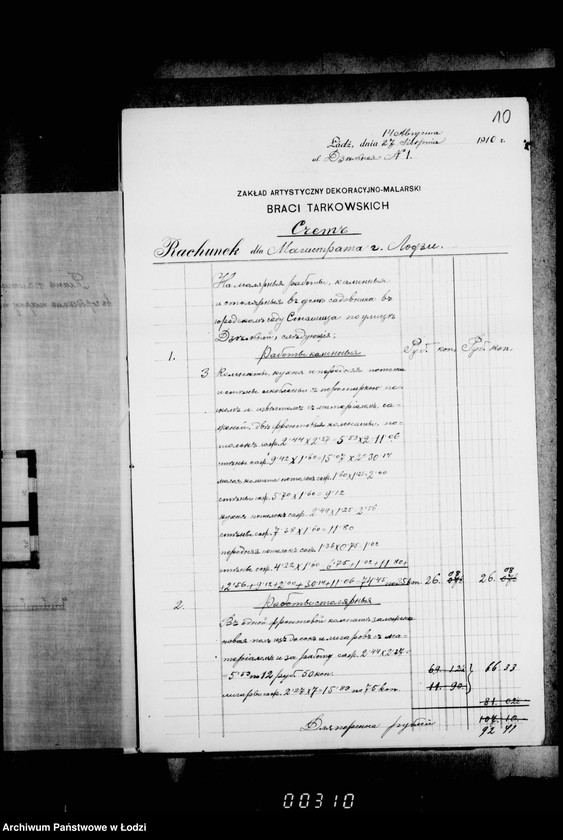 10
14 Августа
Łódź, dnia 27 Sierpnia 1910 r.
ul Дзельная № 1.
ZAKŁAD ARTYSTYCZNY DEKORACYJNO-MALARSKI
BRACI TARKOWSKICH
Счетъ
Rachunek dla Магистрата г. Лодзи.
На малярныя работы, каменныя
и столярныя въ домѣ садовника въ
городскомъ саду по улицѣ
слѣдующія:
1. Работы каменныя Руб. коп. Руб. коп.
3 Комнаты, кухня и передняя потолки
и стѣны
и известкомъ съ матеріаломъ са-
женей, двѣ фронтовыя комнаты, по-
толокъ саж. 2.44 x 2.27 = 5.53 x 2 = 11.06
стѣны саж. 9.42 x 1.60 = 15.07 x 2 = 30.14
малая комната потолокъ саж. 1.60 x 1.25 = 2.00
стѣны саж. 5.70 x 1.60 = 9.12
кухня потолокъ саж. 2.44 x 1.25 = 2.56
стѣны саж. 7.38 x 1.60 = 11.80
передняя потолокъ саж. 1.36 x 0.75 = 1.02
стѣны саж. 4.22 x 1.60 = 6.75 + 1.02 + 11.80 +
+ 2.56 + 9.12 + 2.00 + 30.14 + 11.06 = 74.45 по 35 к. 26. 08 26. 08
2. Работы столярныя
Въ одной фронтовой комнатѣ
новая полъ изъ досокъ и лигаровъ съ ма-
теріаломъ и за работу саж. 2.44 x 2.27 =
= 5.53 по 12 руб. 50 коп. 69. 12 66 33
лигаровъ саж. 2.27 x 7 = 15.89 по 75 коп. 11. 90
81. 02
107. 10
92 41
00310
Archiwum Państwowe w Łodzi